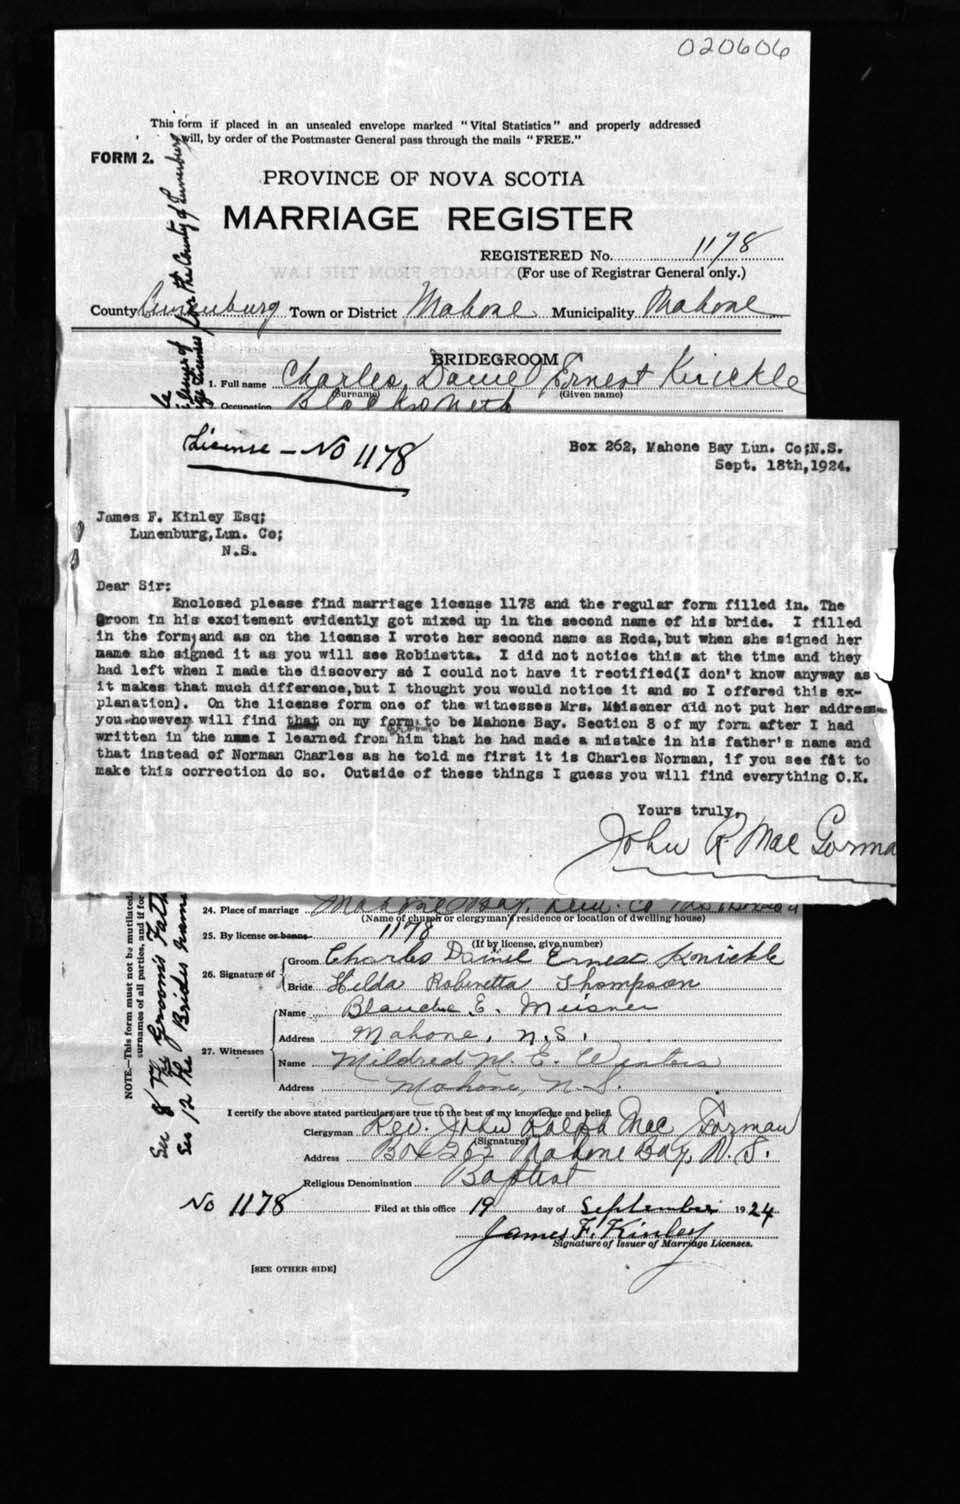 020606
This form if placed in an unsealed envelope marked "Vital Statistics" and properly addressed
will, by order of the Postmaster General pass through the mails "FREE."
FORM 2.
PROVINCE OF NOVA SCOTIA
MARRIAGE REGISTER
REGISTERED No. 1178
(For use of Registrar General only.)
County Lunenburg Town or District Mahone Municipality Mahone
BRIDEGROOM
1. Full name Charles Daniel Ernest Knickle
(Surname) (Given name)
2. Occupation Blacksmith
for the County of Lunenburg
License - No 1178
Box 262, Mahone Bay Lun. Co;N.S.
Sept. 18th,1924.
James F. Kinley Esq;
Lunenburg,Lun. Co;
N.S.
Dear Sir:
Enclosed please find marriage license 1178 and the regular form filled in. The
Groom in his excitement evidently got mixed up in the second name of his bride. I filled
in the form and as on the license I wrote her second name as Reda,but when she signed her
name she signed it as you will see Robinetta. I did not notice this at the time and they
had left when I made the discovery so I could not have it rectified(I don't know anyway as
it makes that much difference,but I thought you would notice it and so I offered this ex-
planation). On the license form one of the witnesses Mrs. Meisener did not put her address
you however will find that on my form to be Mahone Bay. Section 8 of my form after I had
written in the name I learned from him that he had made a mistake in his father's name and
that instead of Norman Charles as he told me first it is Charles Norman, if you see fit to
make this correction do so. Outside of these things I guess you will find everything O.K.
Yours truly,
John R. Mac Gorma
24. Place of marriage Mahone Bay, Lun. Co
(Name of church or clergyman's residence or location of dwelling house)
25. By license or banns 1178
(If by license, give number)
26. Signature of
Groom Charles Daniel Ernest Knickle
Bride Hilda Robinetta Thompson
27. Witnesses
Name Blanche E. Meisner
Address Mahone, N.S.
Name Mildred M. E. Winters
Address Mahone, N.S.
I certify the above stated particulars are true to the best of my knowledge and belief.
Clergyman Rev. John Ralph Mac Gorman
(Signature)
Address Box 262 Mahone Bay, N.S.
Religious Denomination Baptist
No 1178 Filed at this office 19 day of September 1924
James F. Kinley
Signature of Issuer of Marriage Licenses.
[SEE OTHER SIDE]
NOTE.—This form must not be mutilated.
surnames of all parties, and if for
Sec 8 The Grooms Fath
Sec 12 The Brides name